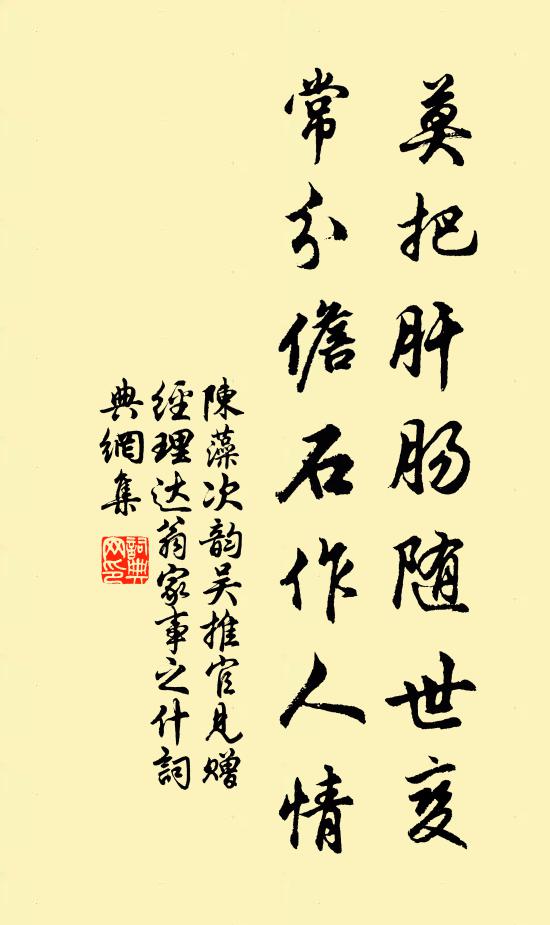 莫把肝肠随世变
常分儋石作人情
陳藻次韵吴推官見赠
經理达翁家事之什詞
典網集
詞典
网印